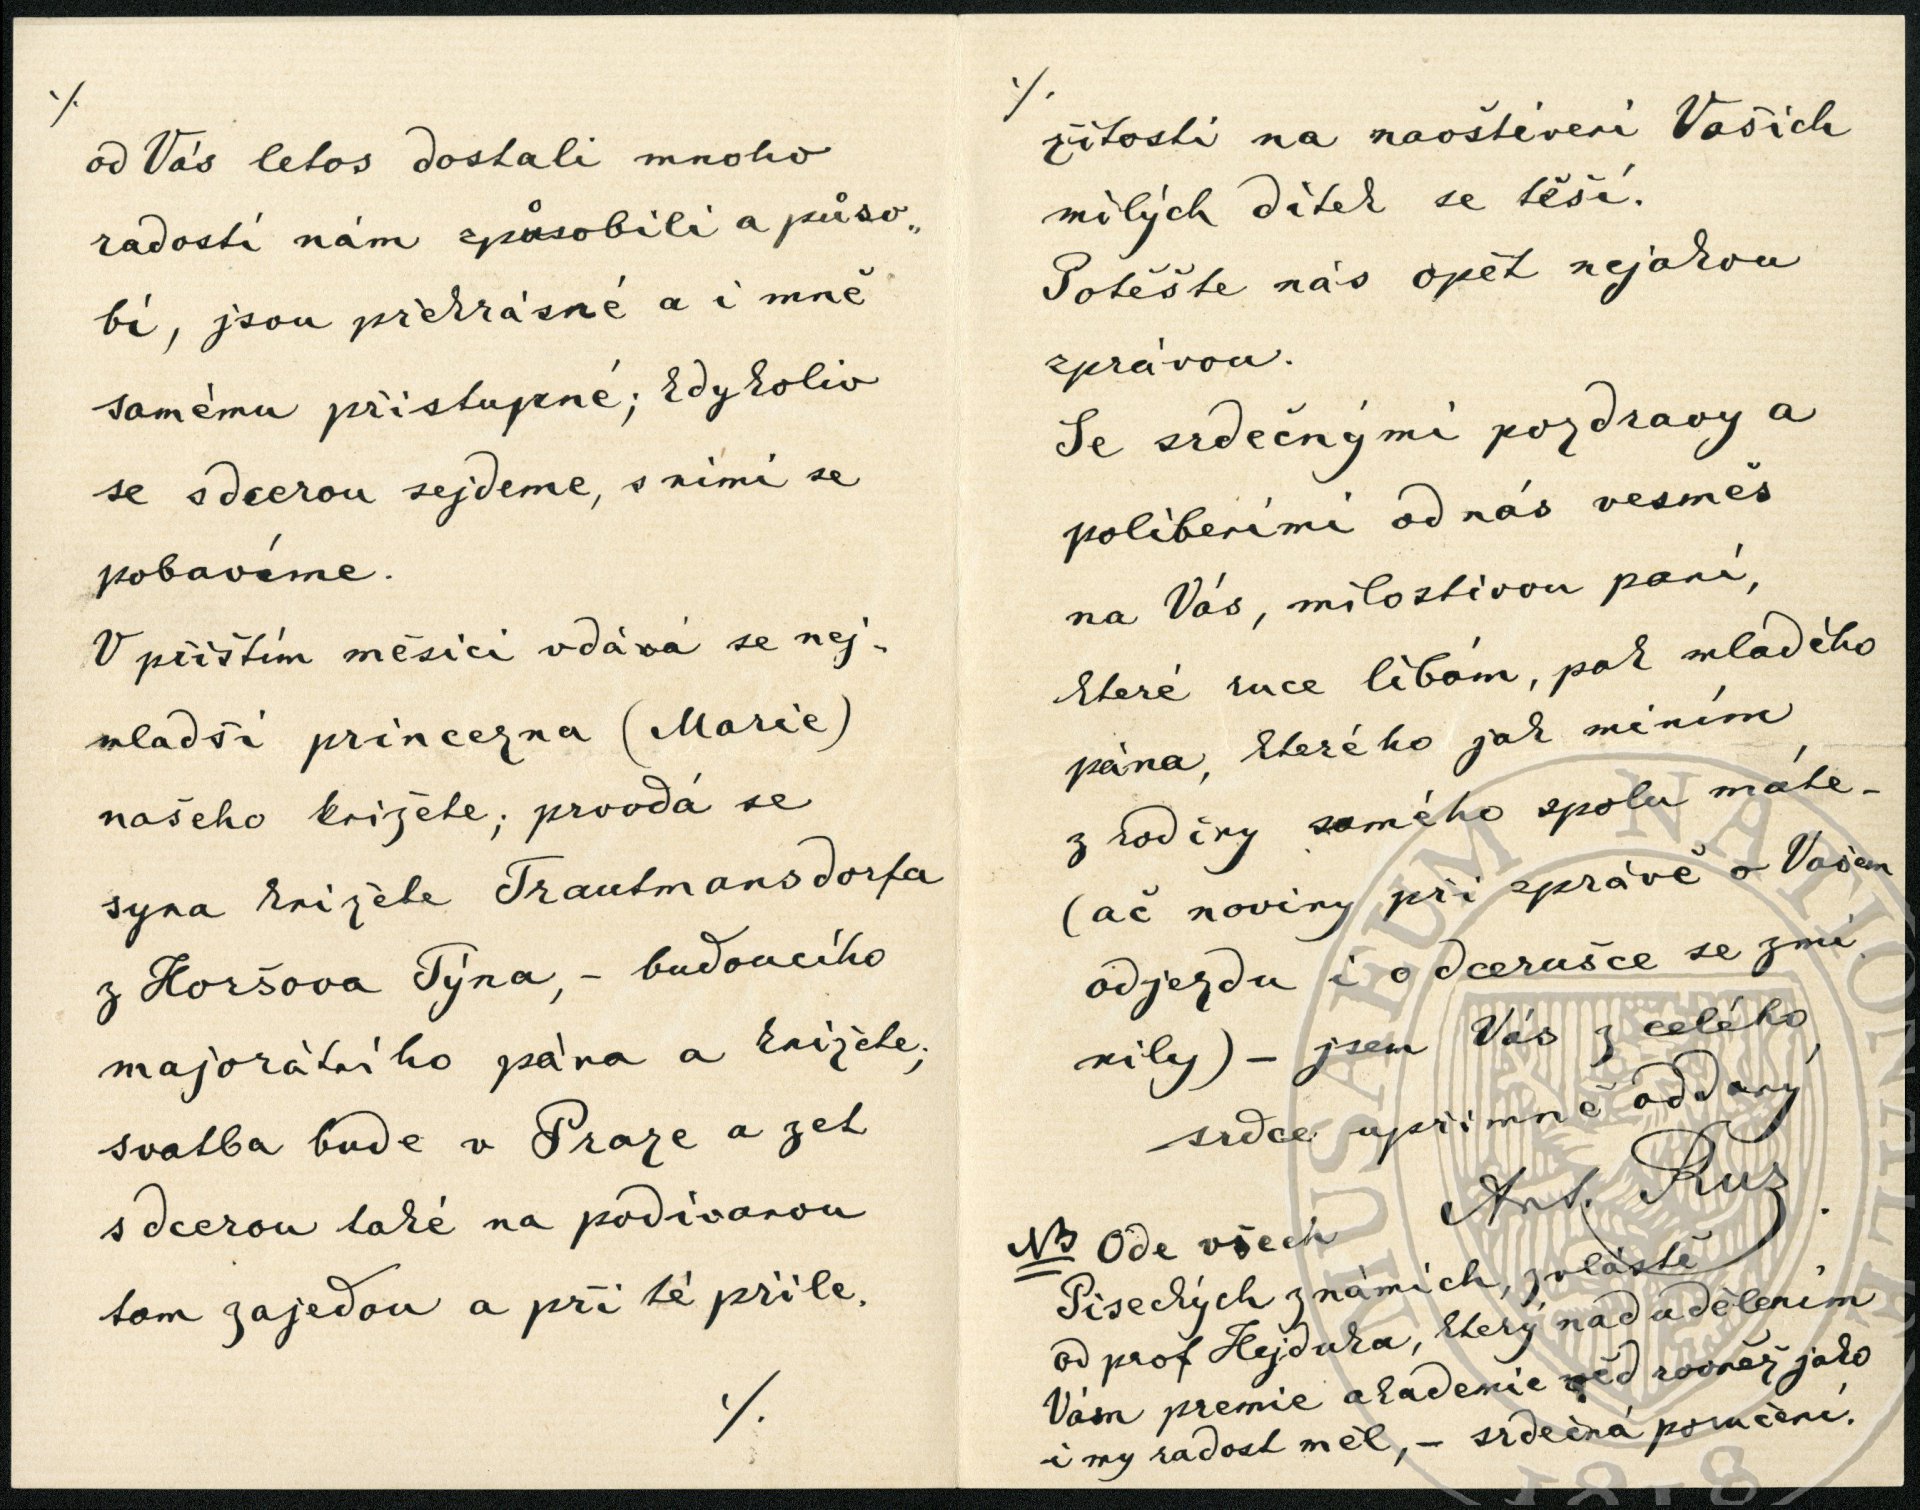 ·/.
od Vás letos dostali mnoho
radosti nám způsobili a půso„
bí, jsou překrásné a i mně
samému přistupné; kdykoliv
se sdcerou sejdeme, s nimi se
pobavíme.
V přištím měsici vdává se nej-
mladší princezna (Marie)
našeho knižete; provdá se
syna knižete Trautmansdorfa
z Horšova Týna, – budoucího
majorátního pána a knižete;
svatba bude v Praze a zet
sdcerou také na podívanou
tam zajedou a při té příle.
·/.
·/.
žitosti na naoštívení Vašich
milých dítek se těší.
Potěšte nás opět nejakou
zprávou.
Se srdečnými pozdravy a
políbeními od nás vesměs
na Vás, milostivou paní,
které ruce líbám, pak mladého
pána, kterého jak míním
z rodiny samého spolu máte –
(ač noviny při zprávě o Vašem
odjezdu i o dcerušce se zmí
nily) – jsem Vás z celého
srdce upřimně oddaný
Ant. Ruz.
NB Ode všech
Piseckých známích, zvláště
od prof Hejduka, který nad udělením
Vám premie akademie věd rovněž jako
i my radost měl, – srdečná poručení.
MUSAEUM NATIONALE
1818